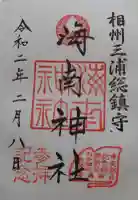 相州三浦総鎮守
海南神社
海南
神社
令和二年二月八日